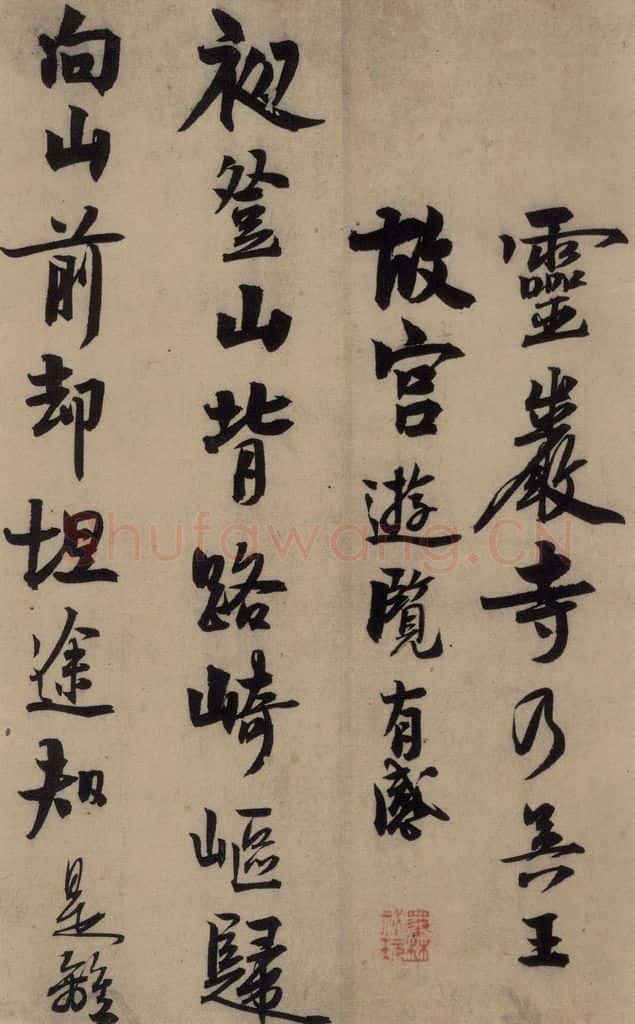 靈巖寺乃吴王
故宫遊覽有感
初登山背路崎嶇歸
向山前却坦途知是離
shufawang.CN